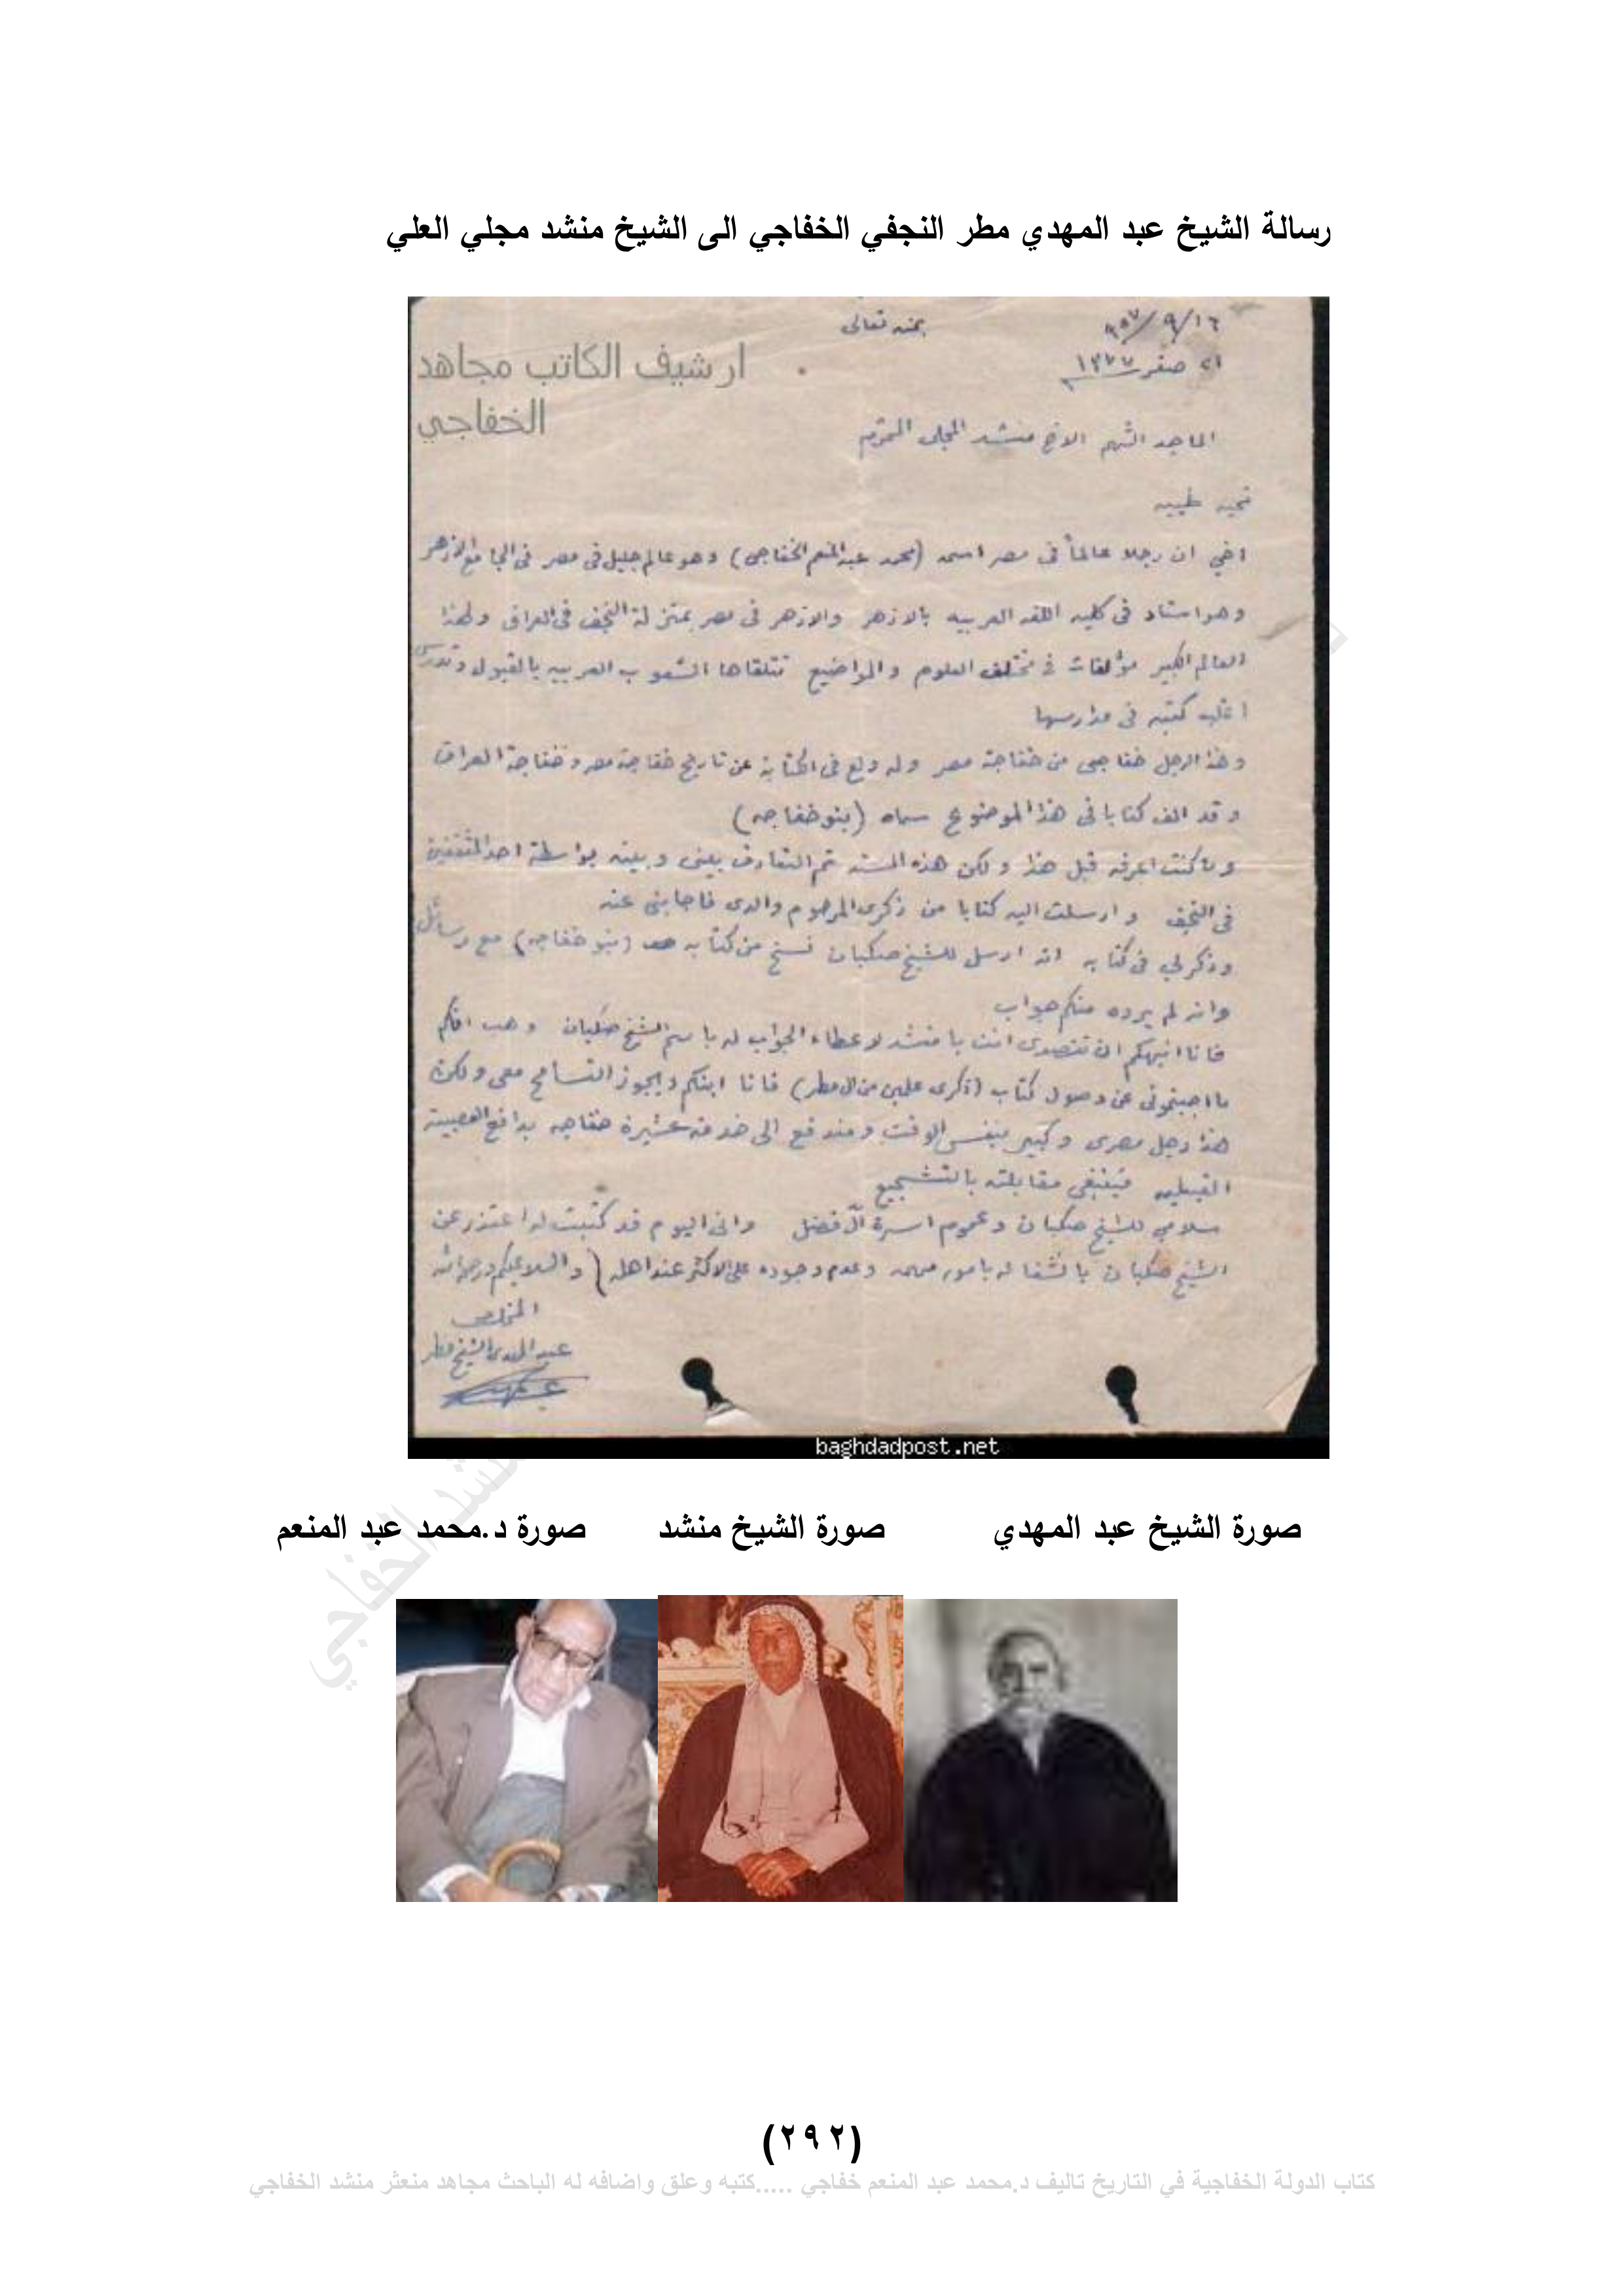 رسالة الشيخ عبد المهدي مطر النجفي الخفاجي الى الشيخ منشد مجلي العلي
بمنه تعالى
١٦/٩/٩٥٧
٢١ صفر ١٣٧٧
ارشيف الكاتب مجاهد
الخفاجي
الماجد الشهم الاخ منشد المجلي المحترم
تحيه طيبه
اخي ان رجلا عالماً في مصر اسمه (محمد عبد المنعم الخفاجي) وهو عالم جليل في مصر في الجامع الازهر
وهو استاد في كليه اللغه العربيه بالازهر والازهر في مصر بمنزلة النجف في العراق ولهذا
العالم الكبير مؤلفات في مختلف العلوم والمواضيع تتلقاها الشعوب العربيه بالقبول وتدرس
اغلب كتبه في مدارسها
وهذا الرجل خفاجي من خفاجة مصر وله ولع في الكتابة عن تاريخ خفاجة مصر وخفاجة العراق
وقد الف كتابا في هذا الموضوع سماه (بنو خفاجه)
وما كنت اعرفه قبل هذا ولكن هذه السنه تم التعارف بيني وبينه بواسطة احد المثقفين
في النجف وارسلت اليه كتابا من ذكرى المرحوم والدي فاجابني عنه
وذكر لي في كتابه انه ارسل للشيخ صكبان نسخ من كتابه (بنو خفاجه) مع رسائل
وانه لم يرده منكم جواب
فانا انبهكم ان تتصدى انت يا منشد لاعطاء الجواب له باسم الشيخ صكبان وهب انكم
ما اجبتموني عن وصول كتاب (ذكرى علمين من ال مطر) فانا ابنكم ويجوز التسامح معي ولكن
هذا رجل مصري وكبير بنفس الوقت ومندفع الى خدمة عشيرة خفاجه بدافع العصبية
القبليه فينبغي مقابلته بالتشجيع
سلامي للشيخ صكبان وعموم اسرة آل فضل واني اليوم قد كتبت له اعتذر عن
الشيخ صكبان بانشغاله بامور مهمه وعدم وجوده على الاكثر عند اهله) والسلام عليكم ورحمة الله
المخلص
عبد المهدي الشيخ مطر
baghdadpost.net
صورة الشيخ عبد المهدي صورة الشيخ منشد صورة د.محمد عبد المنعم
(٢٩٢)
كتاب الدولة الخفاجية في التاريخ تاليف د.محمد عبد المنعم خفاجي .....كتبه وعلق واضافه له الباحث مجاهد منعثر منشد الخفاجي